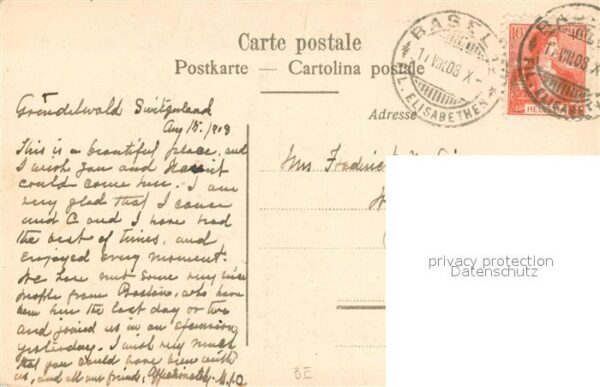 Carte postale
Postkarte – Cartolina postale
Adresse
BASEL
17.VIII.08 X-
FIL. ELISABETHEN
10
HELVETIA
BASEL
17.VIII.08
FIL. ELISABETHEN
Grindelwald Switzerland
Aug 15. /908
This is a beautiful place, and
I wish you and Harriet
could come here. I am
very glad that I came
and C and I have had
the best of times, and
enjoyed every moment.
We have met some very nice
people from Boston, who have
been here the last day or two
and joined us in an excursion
yesterday. I wish very much
that you could have been with
us, and all our friends, Affectionately. M.J.O
Mrs Frederick
privacy protection
Datenschutz
BE